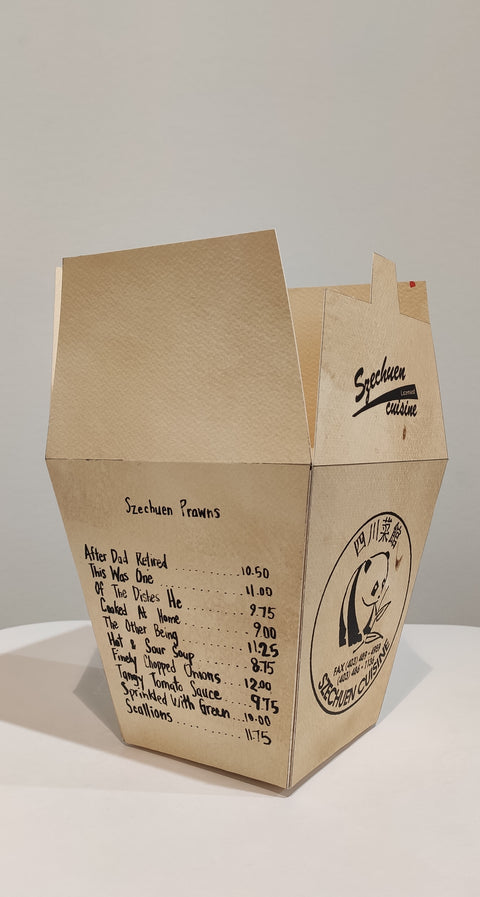 Szechuen
Licensed
cuisine
Szechuen Prawns
After Dad Retired ............ 10.50
This Was One ............ 11.00
Of The Dishes He ............ 9.75
Cooked At Home ............ 9.00
The Other Being ............ 11.25
Hot & Sour Soup ............ 8.75
Finely Chopped Onions ............ 12.00
Tangy Tomato Sauce ............ 9.75
Sprinkled With Green ... 10.00
Scallions ............ 11.75
四川菜館
FAX (403)
(403)
SZECHUEN CUISINE